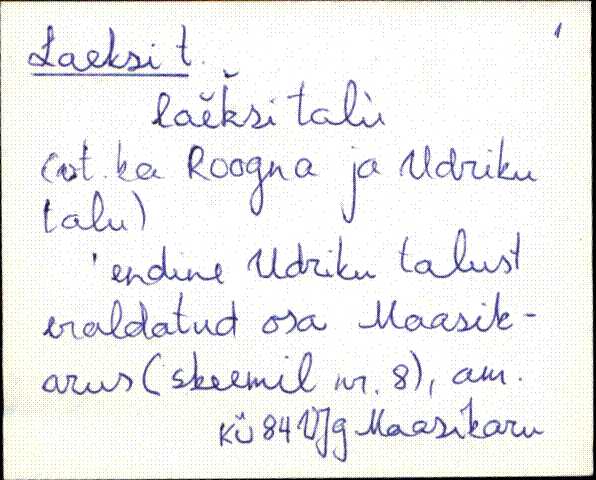 1
Laeksi t.
laĕk̆si talù
(vt. ka Roogna ja Udriku
talu)
'endine Udriku talust
eraldatud osa Maasik-
arus (skeemil nr. 8), am.
KÜ 84 VJg Maasikaru